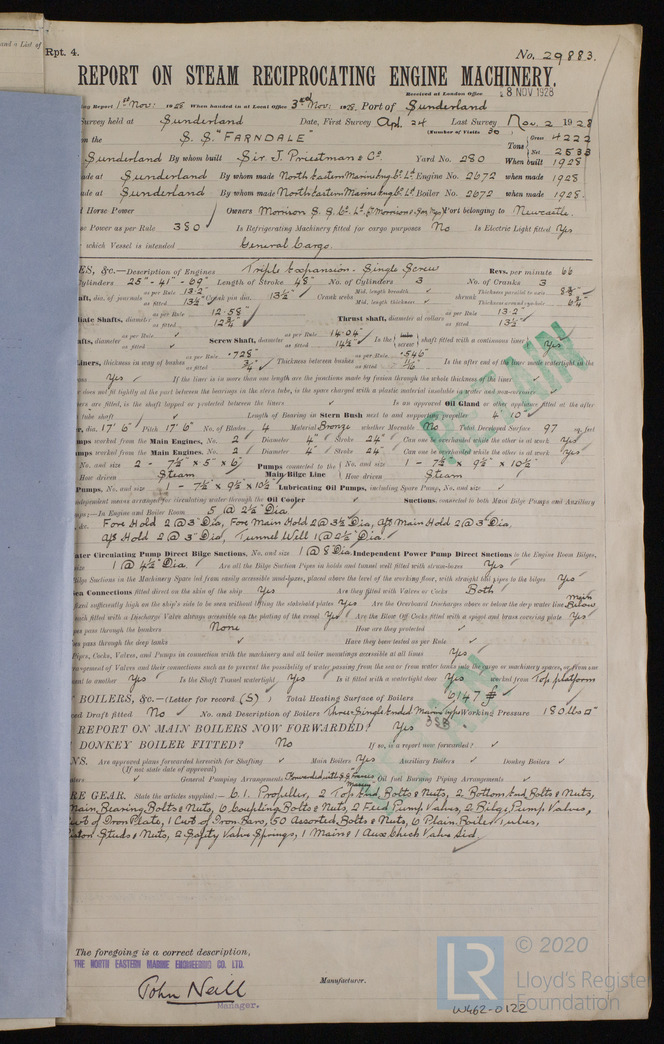 and a List of
Rpt. 4.
No. 29883.
REPORT ON STEAM RECIPROCATING ENGINE MACHINERY.
Received at London Office 8 NOV 1928
Report 1st Nov: 1928 When handed in at Local Office 3rd Nov: 1928. Port of Sunderland
Survey held at Sunderland Date, First Survey Apl. 24 Last Survey Nov. 2 1928
(Number of Visits 30)
on the S.S. "FARNDALE" Tons Gross 4222 Net 2533
Sunderland By whom built Sir J. Priestman & Co. Yard No. 280 When built 1928
made at Sunderland By whom made North Eastern Marine Eng Co. Lt. Engine No. 2672 when made 1928
made at Sunderland By whom made North Eastern Marine Eng Co. Lt. Boiler No. 2672 when made 1928.
Horse Power Owners Morrison S.S. Co. Lt. Port belonging to Newcastle.
Horse Power as per Rule 380 Is Refrigerating Machinery fitted for cargo purposes No Is Electric Light fitted Yes
which Vessel is intended General Cargo.
ES, &c.—Description of Engines Triple Expansion. Single Screw Revs. per minute 66
Cylinders 25" - 41" - 69" Length of Stroke 48" No. of Cylinders 3 No. of Cranks 3
dia. of journals as per Rule 13.2" as fitted 13½" Crank pin dia. 13½" Crank webs Mid. length breadth Mid. length thickness shrunk Thickness parallel to axis 8⅜" Thickness around eyehole 6¾"
iate Shafts, diameter as per Rule 12.58" as fitted 12¾" Thrust shaft, diameter at collars as per Rule 13.2" as fitted 13½"
Shafts, diameter as per Rule as fitted Screw Shaft, diameter as per Rule 14.04" as fitted 14½" Is the tube screw shaft fitted with a continuous liner Yes
Liners, thickness in way of bushes as per Rule .728" as fitted ¾" Thickness between bushes as per Rule .546" as fitted 11/16" Is the after end of the liner made watertight in the
Yes If the liner is in more than one length are the junctions made by fusion through the whole thickness of the liner
does not fit tightly at the part between the bearings in the stern tube, is the space charged with a plastic material insoluble in water and non-corrosive
liners are fitted, is the shaft lapped or protected between the liners Is an approved Oil Gland or other appliance fitted at the after
tube shaft Length of Bearing in Stern Bush next to and supporting propeller 4' 10"
dia. 17' 6" Pitch 17' 6" No. of Blades 4 Material Bronze whether Moveable No Total Developed Surface 97 sq. feet
Pumps worked from the Main Engines, No. 2 Diameter 4" Stroke 24" Can one be overhauled while the other is at work Yes
Pumps worked from the Main Engines, No. 2 Diameter 4" Stroke 24" Can one be overhauled while the other is at work Yes
No. and size 2 - 7½" x 5" x 6" Pumps connected to the Main Bilge Line No. and size 1 - 7½" x 9½" x 10½"
How driven Steam How driven Steam
Pumps, No. and size 1 - 7½" x 9½" x 10½" Lubricating Oil Pumps, including Spare Pump, No. and size
independent means arranged for circulating water through the Oil Cooler Suctions, connected to both Main Bilge Pumps and Auxiliary
In Engine and Boiler Room 5 @ 2½" Dia.
Fore Hold 2 @ 3" Dia, Fore Main Hold 2 @ 3½" Dia, Aft Main Hold 2 @ 3" Dia,
Aft Hold 2 @ 3" Dia, Tunnel Well 1 @ 2½" Dia.
Water Circulating Pump Direct Bilge Suctions, No. and size 1 @ 8" Dia Independent Power Pump Direct Suctions to the Engine Room Bilges,
1 @ 4½" Dia. Are all the Bilge Suction Pipes in holds and tunnel well fitted with strum-boxes Yes
Bilge Suctions in the Machinery Space led from easily accessible mud-boxes, placed above the level of the working floor, with straight tail pipes to the bilges Yes
Sea Connections fitted direct on the skin of the ship Yes Are they fitted with Valves or Cocks Both
fixed sufficiently high on the ship's side to be seen without lifting the stokehold plates Yes Are the Overboard Discharges above or below the deep water line Below
each fitted with a Discharge Valve always accessible on the plating of the vessel Yes Are the Blow Off Cocks fitted with a spigot and brass covering plate Yes
pass through the bunkers None How are they protected
pass through the deep tanks Have they been tested as per Rule
Pipes, Cocks, Valves, and Pumps in connection with the machinery and all boiler mountings accessible at all times Yes
arrangement of Valves and their connections such as to prevent the possibility of water passing from the sea or from water tanks into the cargo or machinery spaces, or from one
to another Yes Is the Shaft Tunnel watertight Yes Is it fitted with a watertight door Yes worked from Top platform
BOILERS, &c.—(Letter for record (S)) Total Heating Surface of Boilers 6147
ced Draft fitted No No. and Description of Boilers Three Single Ended Marine type Working Pressure 180 lbs
REPORT ON MAIN BOILERS NOW FORWARDED? Yes
DONKEY BOILER FITTED? No If so, is a report now forwarded?
NS. Are approved plans forwarded herewith for Shafting Main Boilers Yes Auxiliary Boilers Donkey Boilers
(If not state date of approval)
General Pumping Arrangements Oil fuel Burning Piping Arrangements
RE GEAR. State the articles supplied:— C.I. Propeller, 2 Top End Bolts & Nuts, 2 Bottom End Bolts & Nuts,
Main Bearing Bolts & Nuts, 6 Coupling Bolts & Nuts, 2 Feed Pump Valves, 2 Bilge Pump Valves,
Cwt of Iron Plate, 1 Cwt of Iron Bars, 50 Assorted Bolts & Nuts, 6 Plain Boiler Tubes,
Piston Studs & Nuts, 2 Safety Valve Springs, 1 Main & 1 Aux Check Valve Lid.
RETAIN
RETAIN
The foregoing is a correct description,
THE NORTH EASTERN MARINE ENGINEERING CO. LTD.
Manufacturer.
John Neill
Manager.
LR © 2020
Lloyd's Register
Foundation
W462-0122